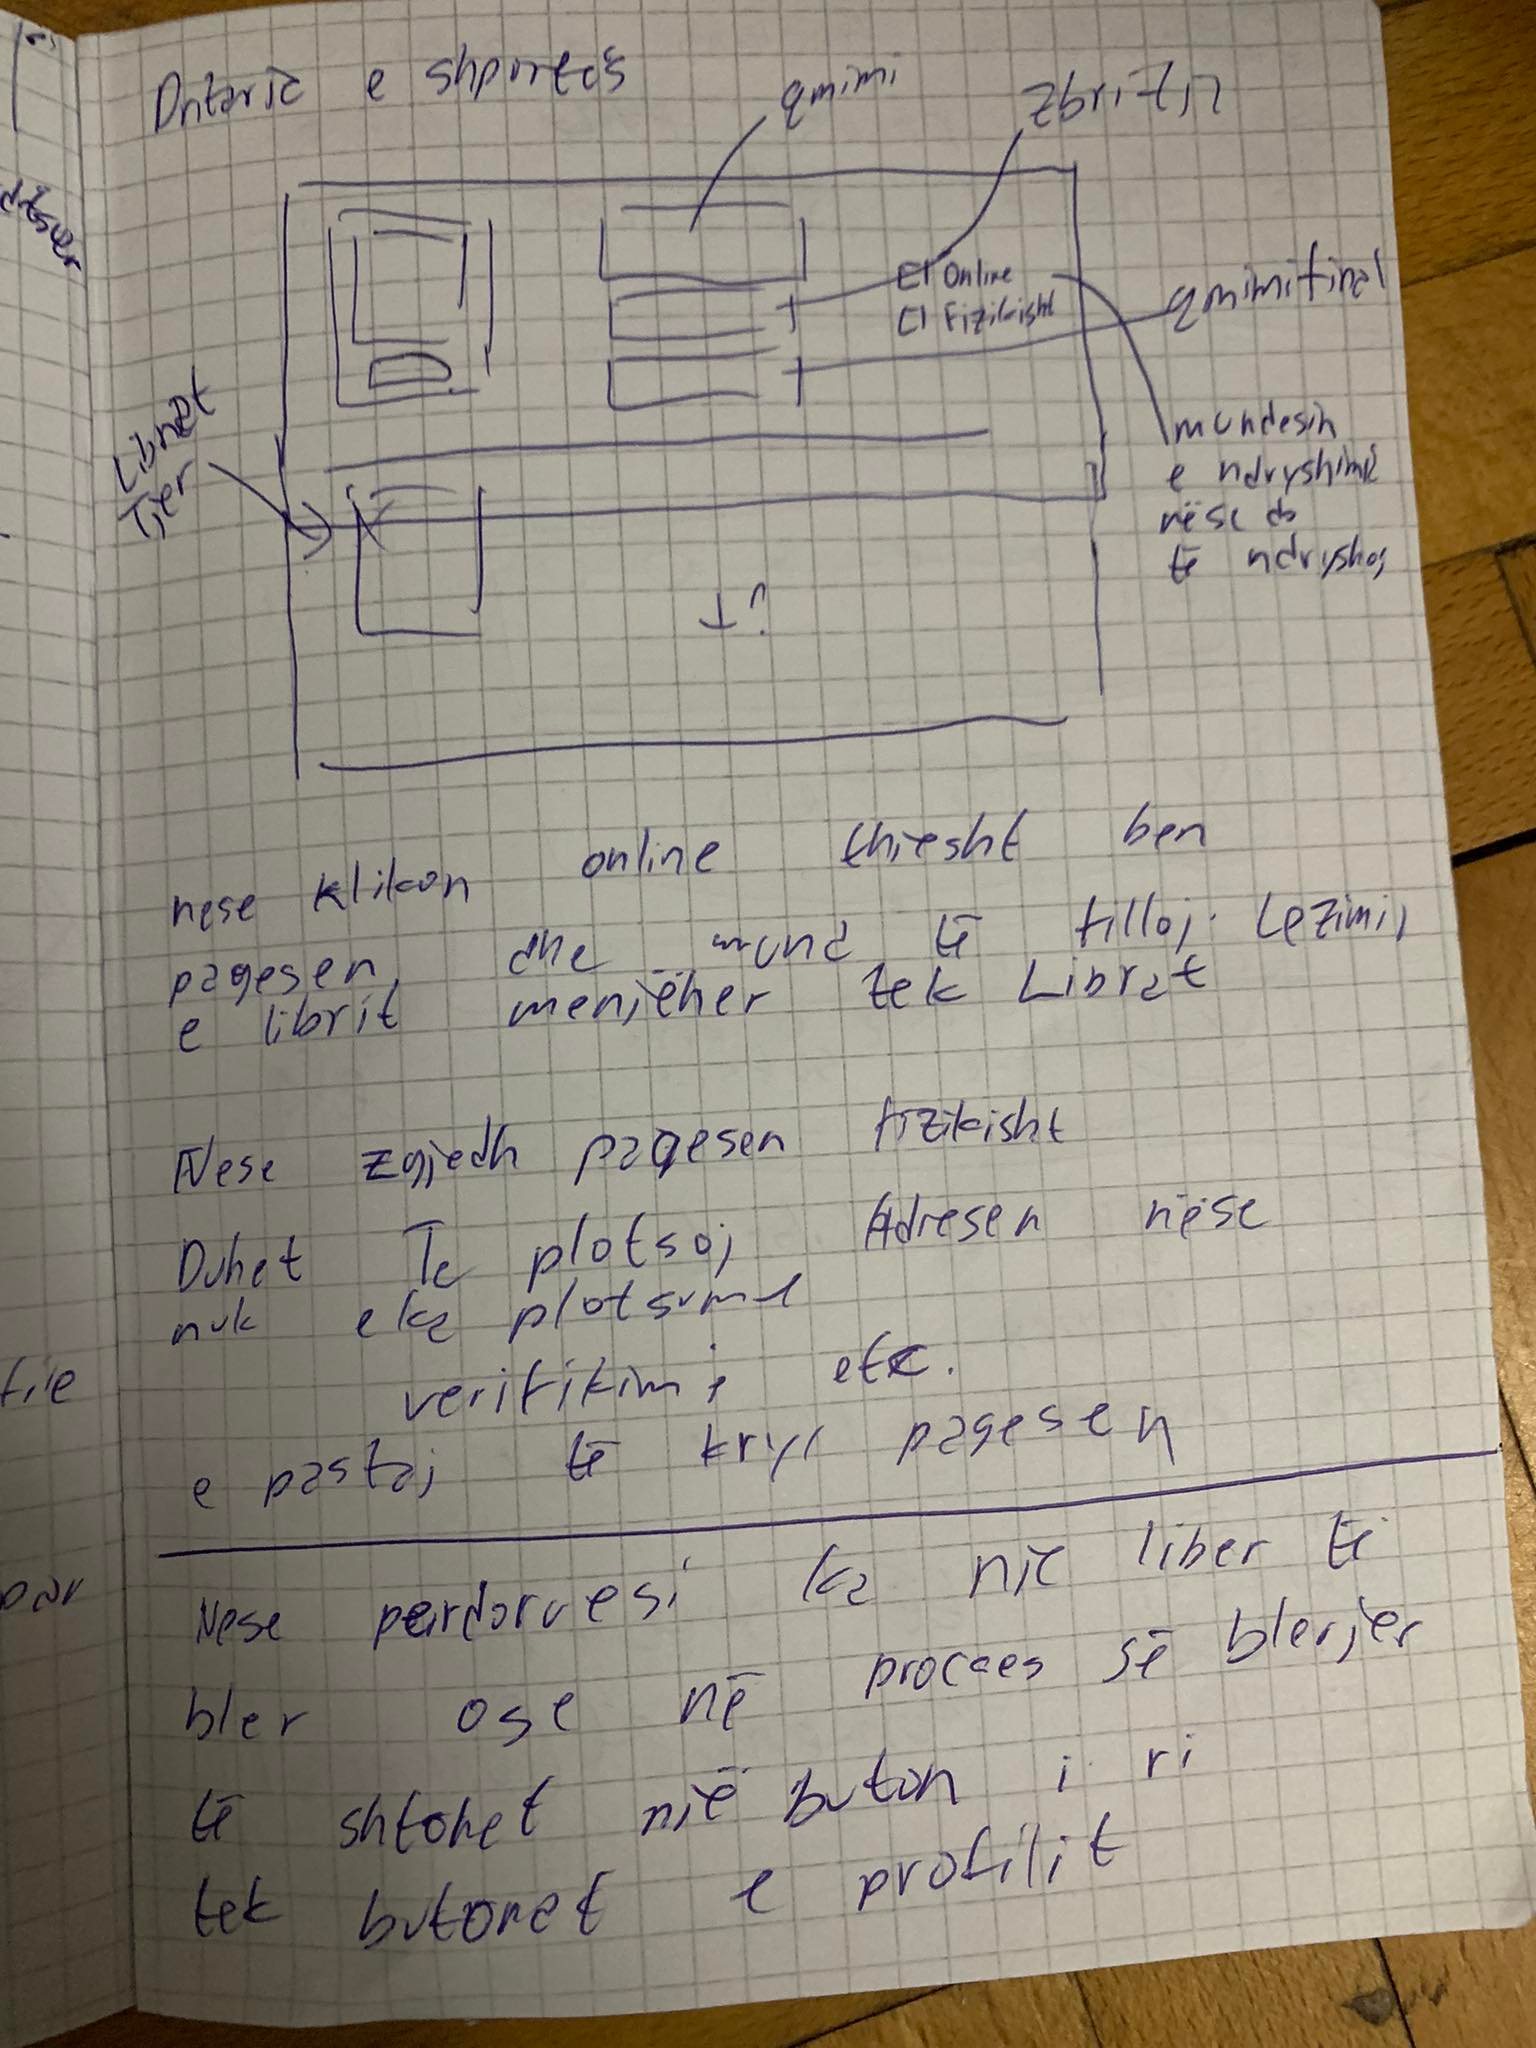 e shportës
qmimi
zbritja
[] Online
[] Fizikisht
qmimi final
mundesin
e ndryshimit
nëse do
të ndryshoj
Librat
Tjer
↓?
nese klikon online thjesht ben
pagesen dhe mund të filloj Lezimi,
e librit menjëher tek Librat
Nese zgjedh pagesen fizikisht
Duhet Te plotsoj Adresen nëse
nuk eka plotsume
verifikimi etc.
e pastaj të kryj pagesen
Nese perdoruesi ka një liber të
bler ose në procces së blerjer
të shtohet një buton i ri
tek butonet e profilit
file
par